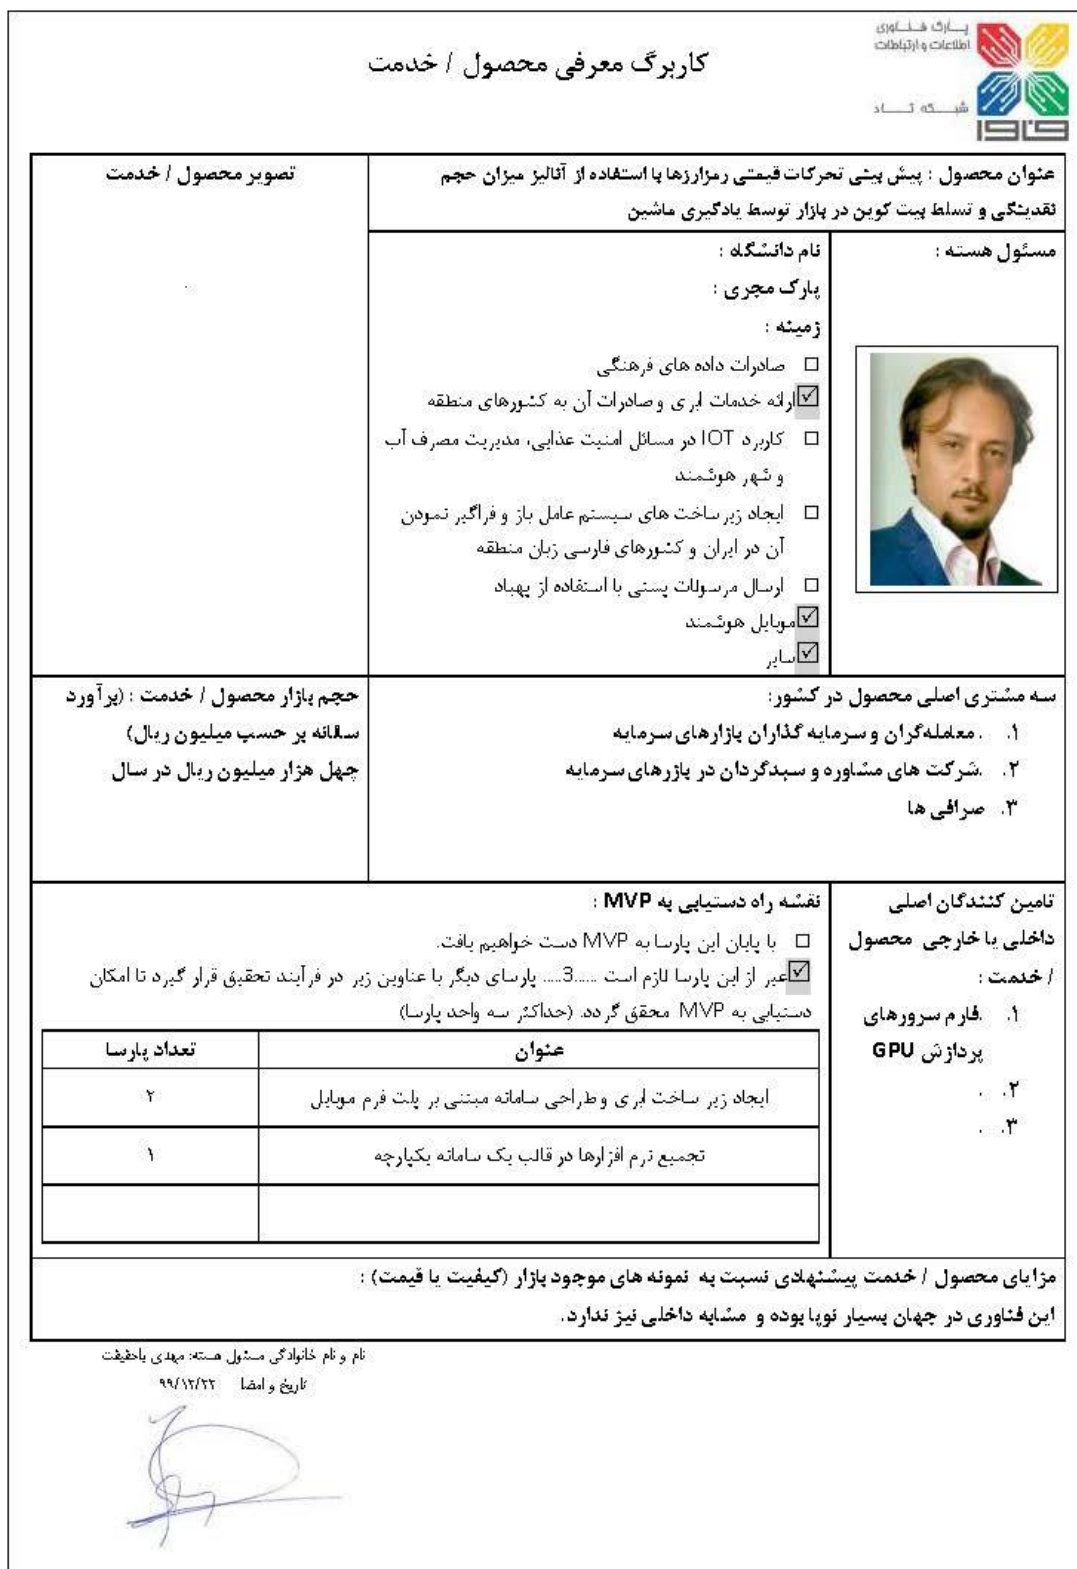 پارک فناوری
اطلاعات و ارتباطات
شبکه ثاد
فاوا
کاربرگ معرفی محصول / خدمت
عنوان محصول : پیش بینی تحرکات قیمتی رمزارزها با استفاده از آنالیز میزان حجم
نقدینگی و تسلط بیت کوین در بازار توسط یادگیری ماشین
تصویر محصول / خدمت
مسئول هسته :
نام دانشگاه :
پارک مجری :
زمینه :
□ صادرات داده های فرهنگی
☑ ارائه خدمات ابری و صادرات آن به کشورهای منطقه
□ کاربرد IOT در مسائل امنیت غذایی، مدیریت مصرف آب
و شهر هوشمند
□ ایجاد زیر ساخت های سیستم عامل باز و فراگیر نمودن
آن در ایران و کشورهای فارسی زبان منطقه
□ ارسال مرسولات پستی با استفاده از پهباد
☑ موبایل هوشمند
☑ سایر
سه مشتری اصلی محصول در کشور:
۱. .معامله‌گران و سرمایه گذاران بازارهای سرمایه
۲. .شرکت های مشاوره و سبدگردان در بازرهای سرمایه
۳. صرافی ها
حجم بازار محصول / خدمت : (برآورد
سالانه بر حسب میلیون ریال)
چهل هزار میلیون ریال در سال
تامین کنندگان اصلی
داخلی یا خارجی محصول
/ خدمت :
۱. .فارم سرورهای
پردازش GPU
۲. .
۳. .
نقشه راه دستیابی به MVP :
□ با پایان این پارسا به MVP دست خواهیم یافت.
☑ غیر از این پارسا لازم است .....3.... پارسای دیگر با عناوین زیر در فرآیند تحقیق قرار گیرد تا امکان
دستیابی به MVP محقق گردد. (حداکثر سه واحد پارسا)
عنوان
تعداد پارسا
ایجاد زیر ساخت ابری و طراحی سامانه مبتنی بر پلت فرم موبایل
۲
تجمیع نرم افزارها در قالب یک سامانه یکپارچه
۱
مزایای محصول / خدمت پیشنهادی نسبت به نمونه های موجود بازار (کیفیت یا قیمت) :
این فناوری در جهان بسیار نوپا بوده و مشابه داخلی نیز ندارد.
نام و نام خانوادگی مسئول هسته: مهدی باحقیقت
تاریخ و امضا ۹۹/۱۲/۲۲